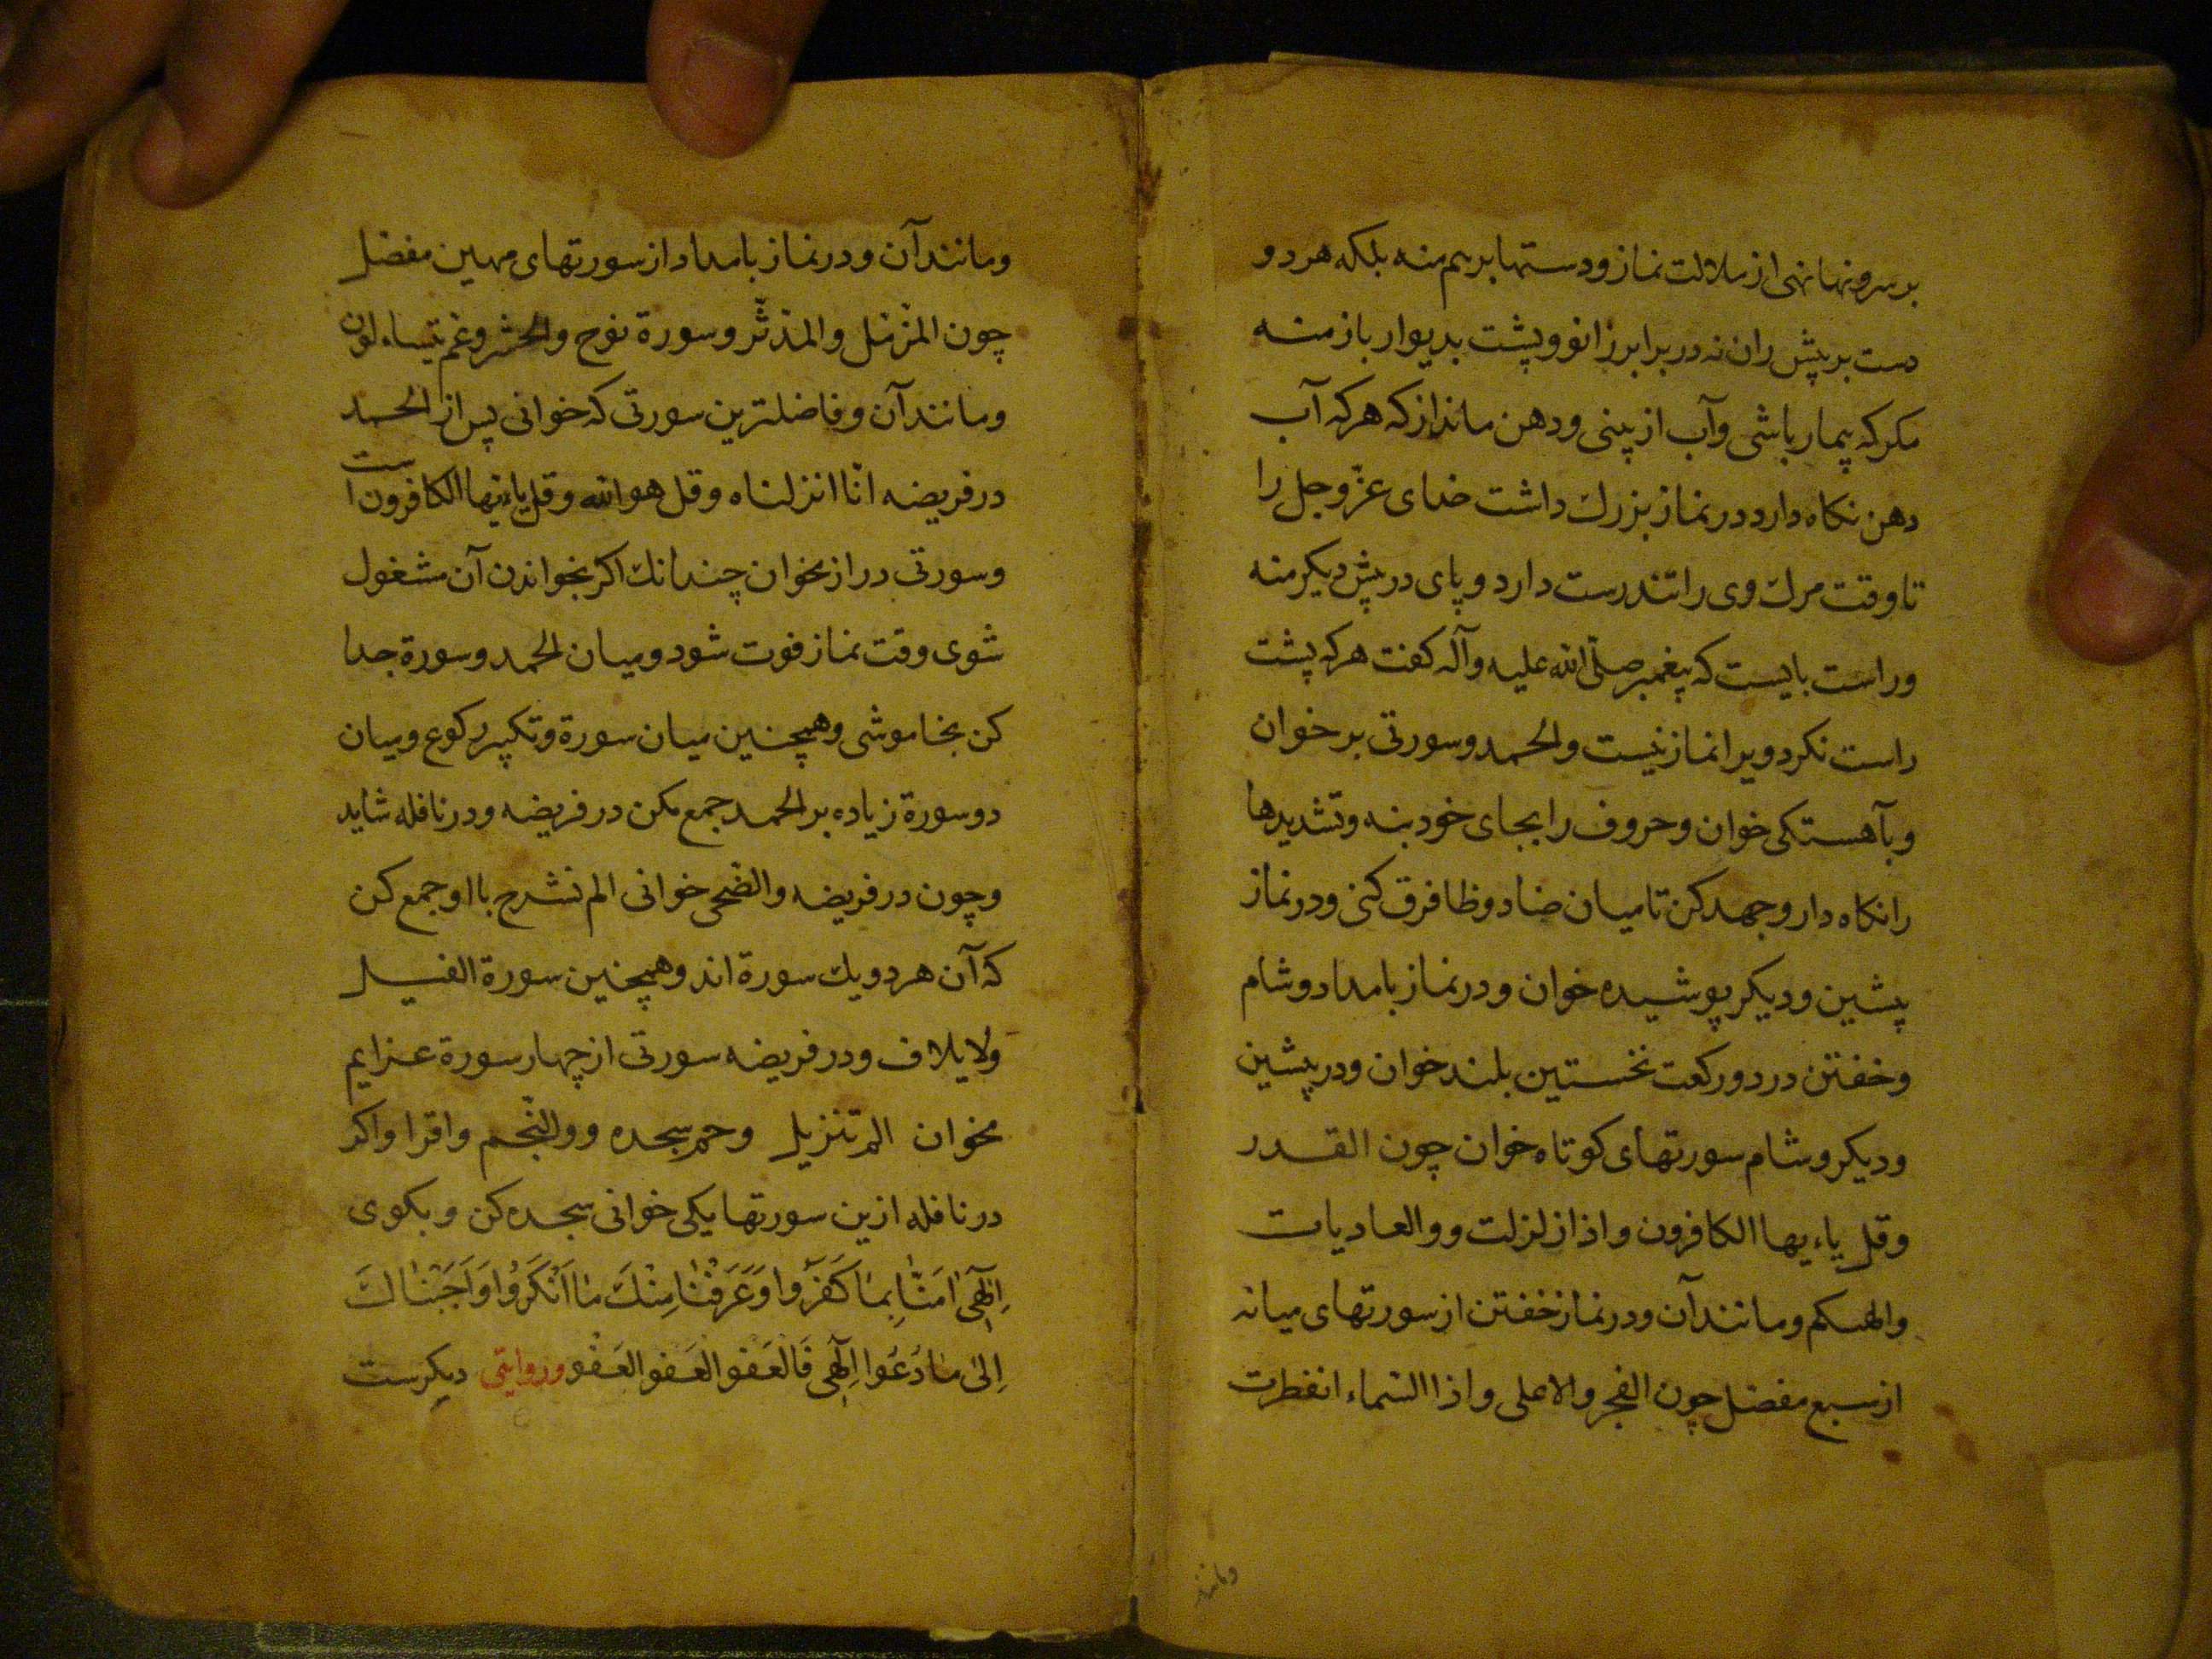 بر سرو نهانهی از ملالت نماز و دستها بر هم منه بلکه هر دو
دست بر پیش ران نه در برابر زانو و پشت بدیوار باز منه
مکر که بیمار باشی و آب از بینی و دهن مانداز که هر که آب
دهن نکاه دارد در نماز بزرك داشت خدای عزّوجل را
تا وقت مرك وی را تندرست دارد و پای در پیش دیکر منه
و راست بایست که پیغمبر صلّی الله علیه وآله کفت هر که پشت
راست نکرد ویرا نماز نیست و الحمد و سورتی بر خوان
و بآهستکی خوان و حروف را بجای خود بنه و تشدیدها
را نکاه دار و جهد کن تا میان ضاد و ظا فرق کنی و در نماز
پیشین و دیکر پوشیده خوان و در نماز بامداد و شام
و خفتن در دو رکعت نخستین بلند خوان و در پیشین
و دیکر و شام سورتهای کوتاه خوان چون القدر
و قل یاءیها الکافرون و اذا زلزلت و والعادیات
و الهیکم و مانند آن و در نماز خفتن از سورتهای میانه
از سبع مفصل چون الفجر و الاعلی و اذا السّماء انفطرت
ومانند
و مانند آن و در نماز بامداد از سورتهای مهین مفصل
چون المزّمّل و المدّثّر و سورة نوح و الحشر و عم یتساءلون
و مانند آن و فاضلترین سورتی که خوانی پس از الحمد
در فریضه انّا انزلناه و قل هو الله و قل یاءیها الکافرون است
و سورتی دراز مخوان چندانك اکر بخواندن آن مشغول
شوی وقت نماز فوت شود و میان الحمد و سورة جدا
کن بخاموشی و همچنین میان سورة و تکبیر رکوع و میان
دو سورة زیاده بر الحمد جمع مکن در فریضه و در نافله شاید
و چون در فریضه والضّحی خوانی الم نشرح با او جمع کن
که آن هر دو یك سورة اند و همچنین سورة الفیل
و لایلاف و در فریضه سورتی از چهار سورة عزایم
مخوان الم تنزیل و حم سجده و والنّجم و اقرا و اکر
در نافله ازین سورتها یکی خوانی سجده کن و بکوی
اِلٰهِی اٰمَنّٰا بِمٰا کَفَرُوا وَعَرَفْنٰا مِنْكَ مٰا اَنْکَرُوا وَاَجَبْنٰاكَ
اِلیٰ مٰا دُعُوا اِلٰهِی فَالْعَفْو الْعَفْو الْعَفْو و روایتی دیکرست